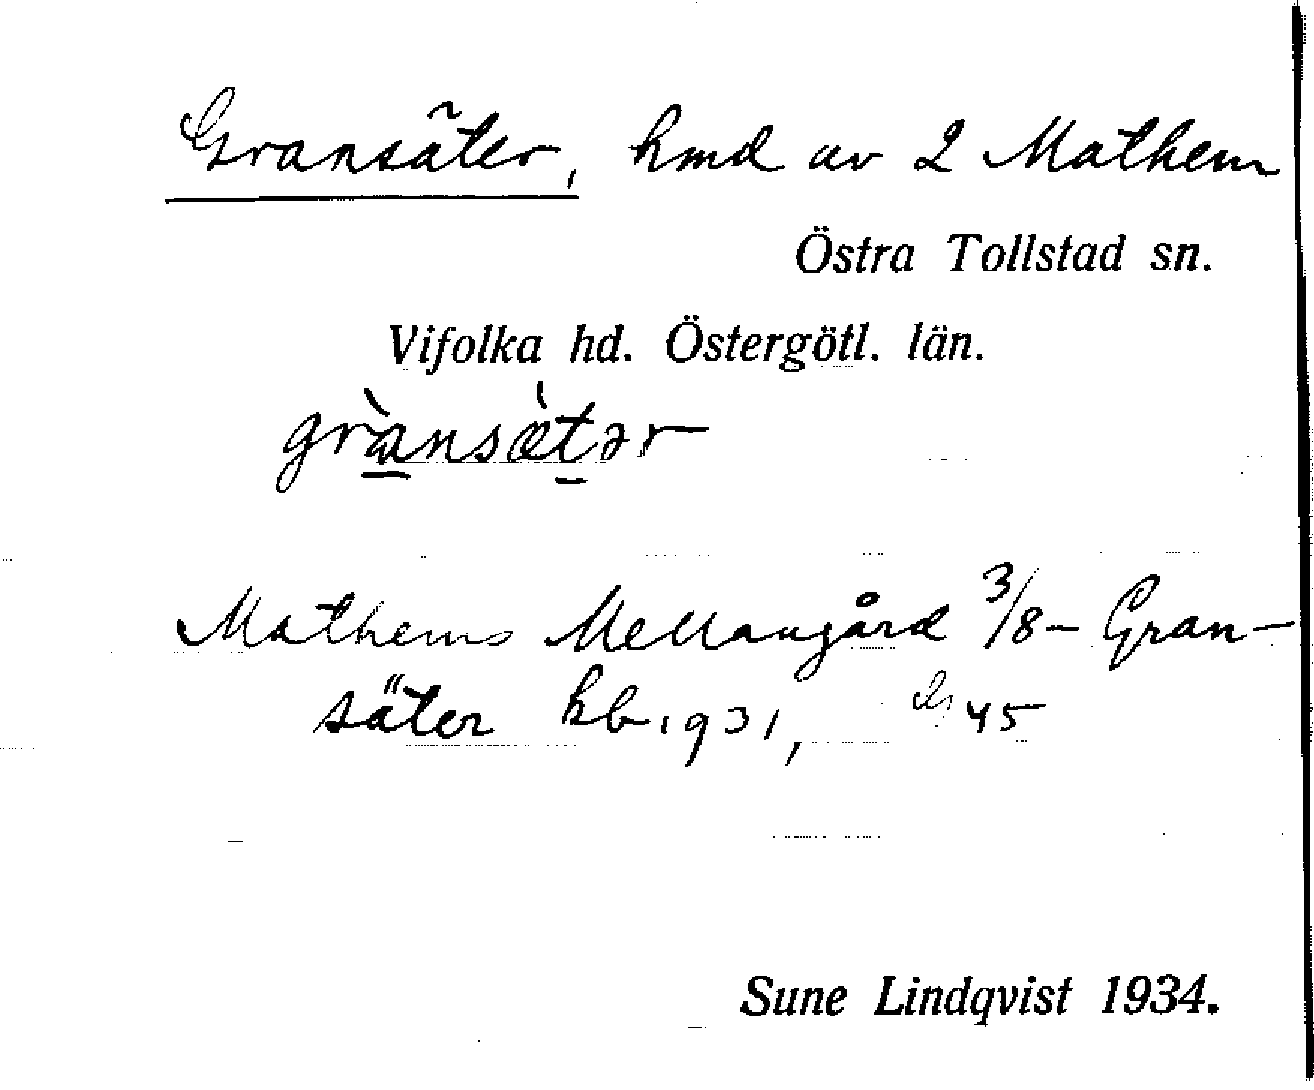 Gransäter, hmd av 2 Mathem
Östra Tollstad sn.
Vifolka hd. Östergötl. län.
grànsæ̀tər
Mathems Mellangård 3/8 - Gran-
säter kb. 1931, 45
Sune Lindqvist 1934.